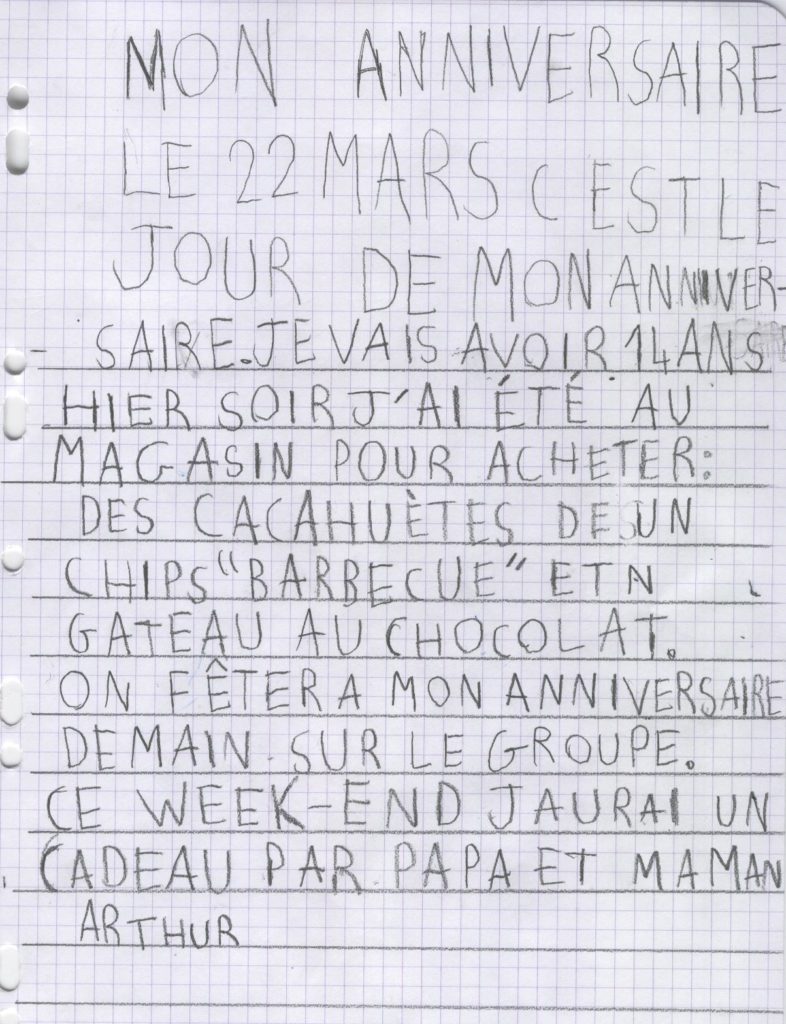 MON ANNIVERSAIRE
LE 22 MARS C EST LE
JOUR DE MON ANNIVER-
- SAIRE. JE VAIS AVOIR 14 ANS
HIER SOIR J'AI ÉTÉ AU
MAGASIN POUR ACHETER:
DES CACAHUÈTES DES UN
CHIPS "BARBECUE" ET N
GATEAU AU CHOCOLAT.
ON FÊTERA MON ANNIVERSAIRE
DEMAIN SUR LE GROUPE.
CE WEEK-END JAURAI UN
CADEAU PAR PAPA ET MAMAN
ARTHUR